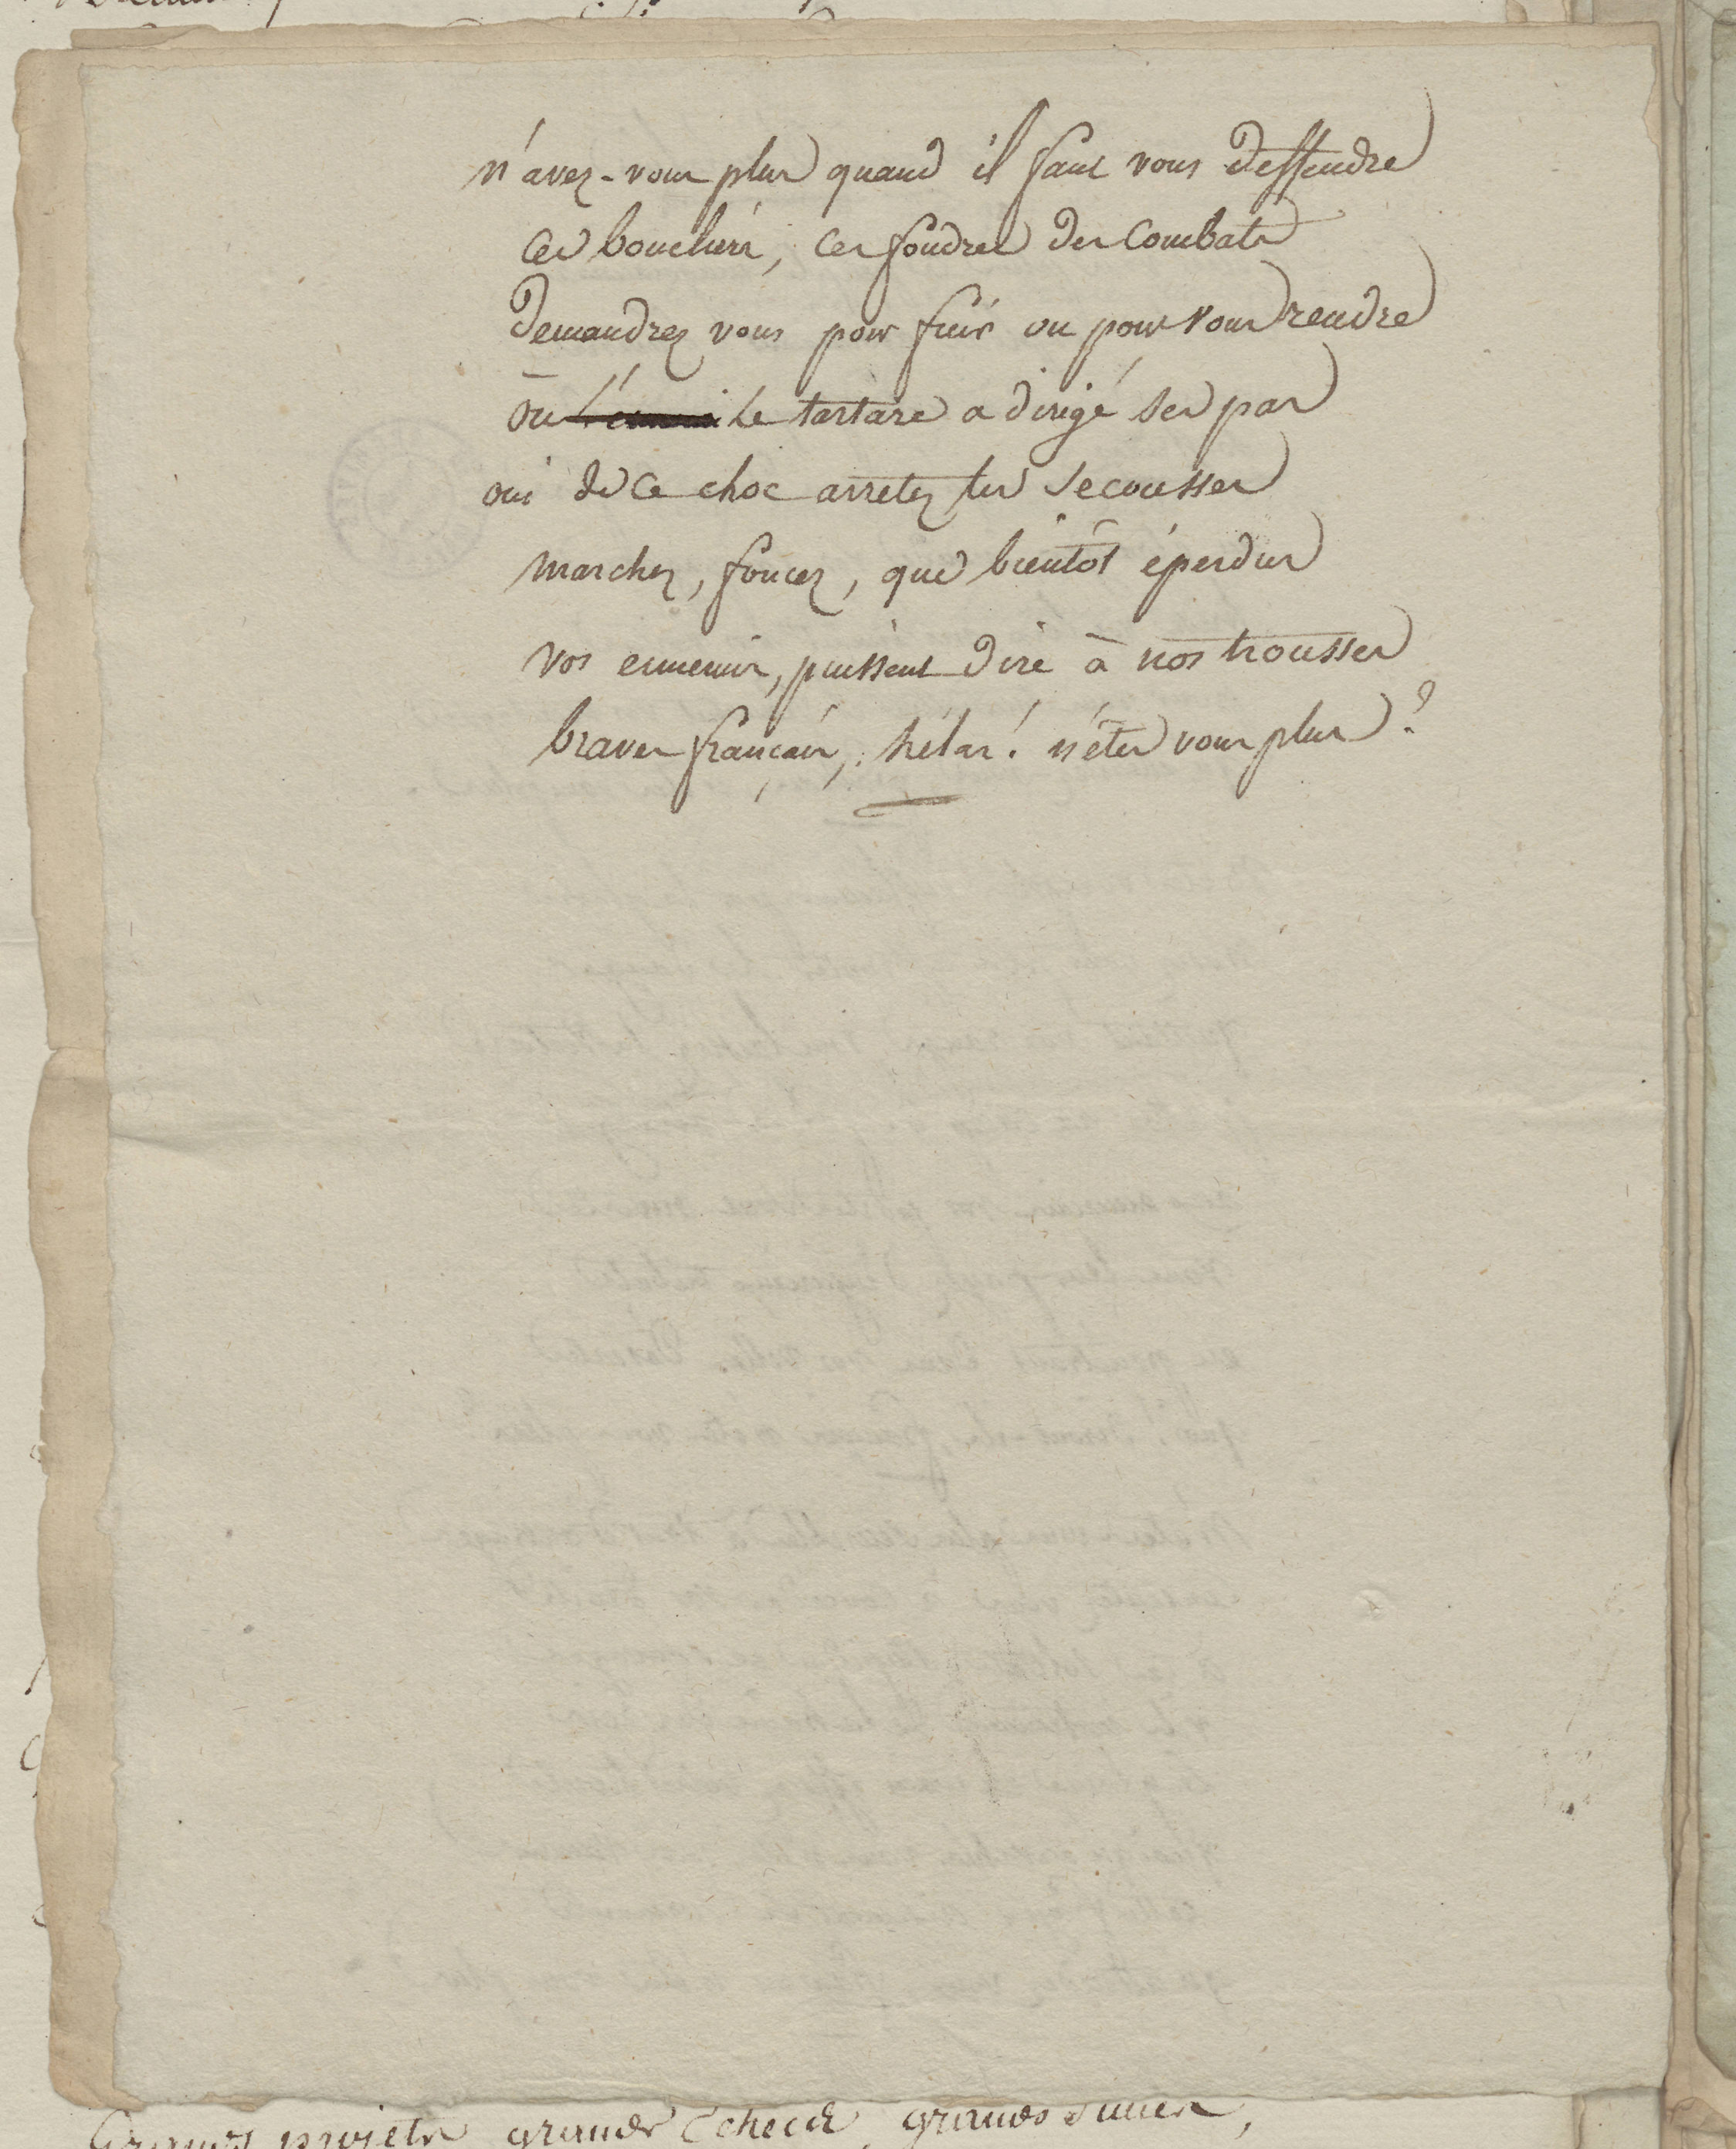 n'avez-vous plus quand il faut vous deffendre
ces boucliers, ces foudres des combats
demandrez vous pour fuir ou pour vous rendre
où le tartare a dirigé ses pas
oui de ce choc arretez les secousses
marchez, foncez, que bientôt éperdus
vos ennemis, puissent dire à nos trousses
braves français, hélas! n'êtes vous plus?
Grands projets grands Echecs, grandes